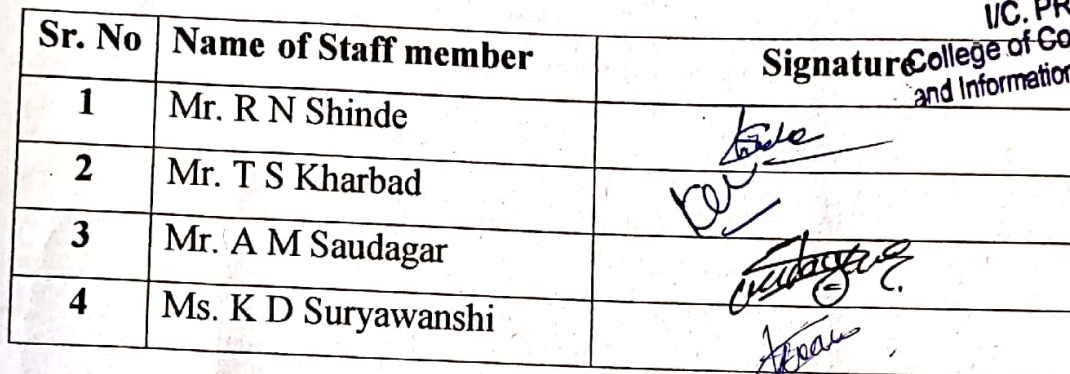 I/C. PR
College of Co
and Information
Sr. No Name of Staff member Signature
1 Mr. R N Shinde
2 Mr. T S Kharbad
3 Mr. A M Saudagar
4 Ms. K D Suryawanshi